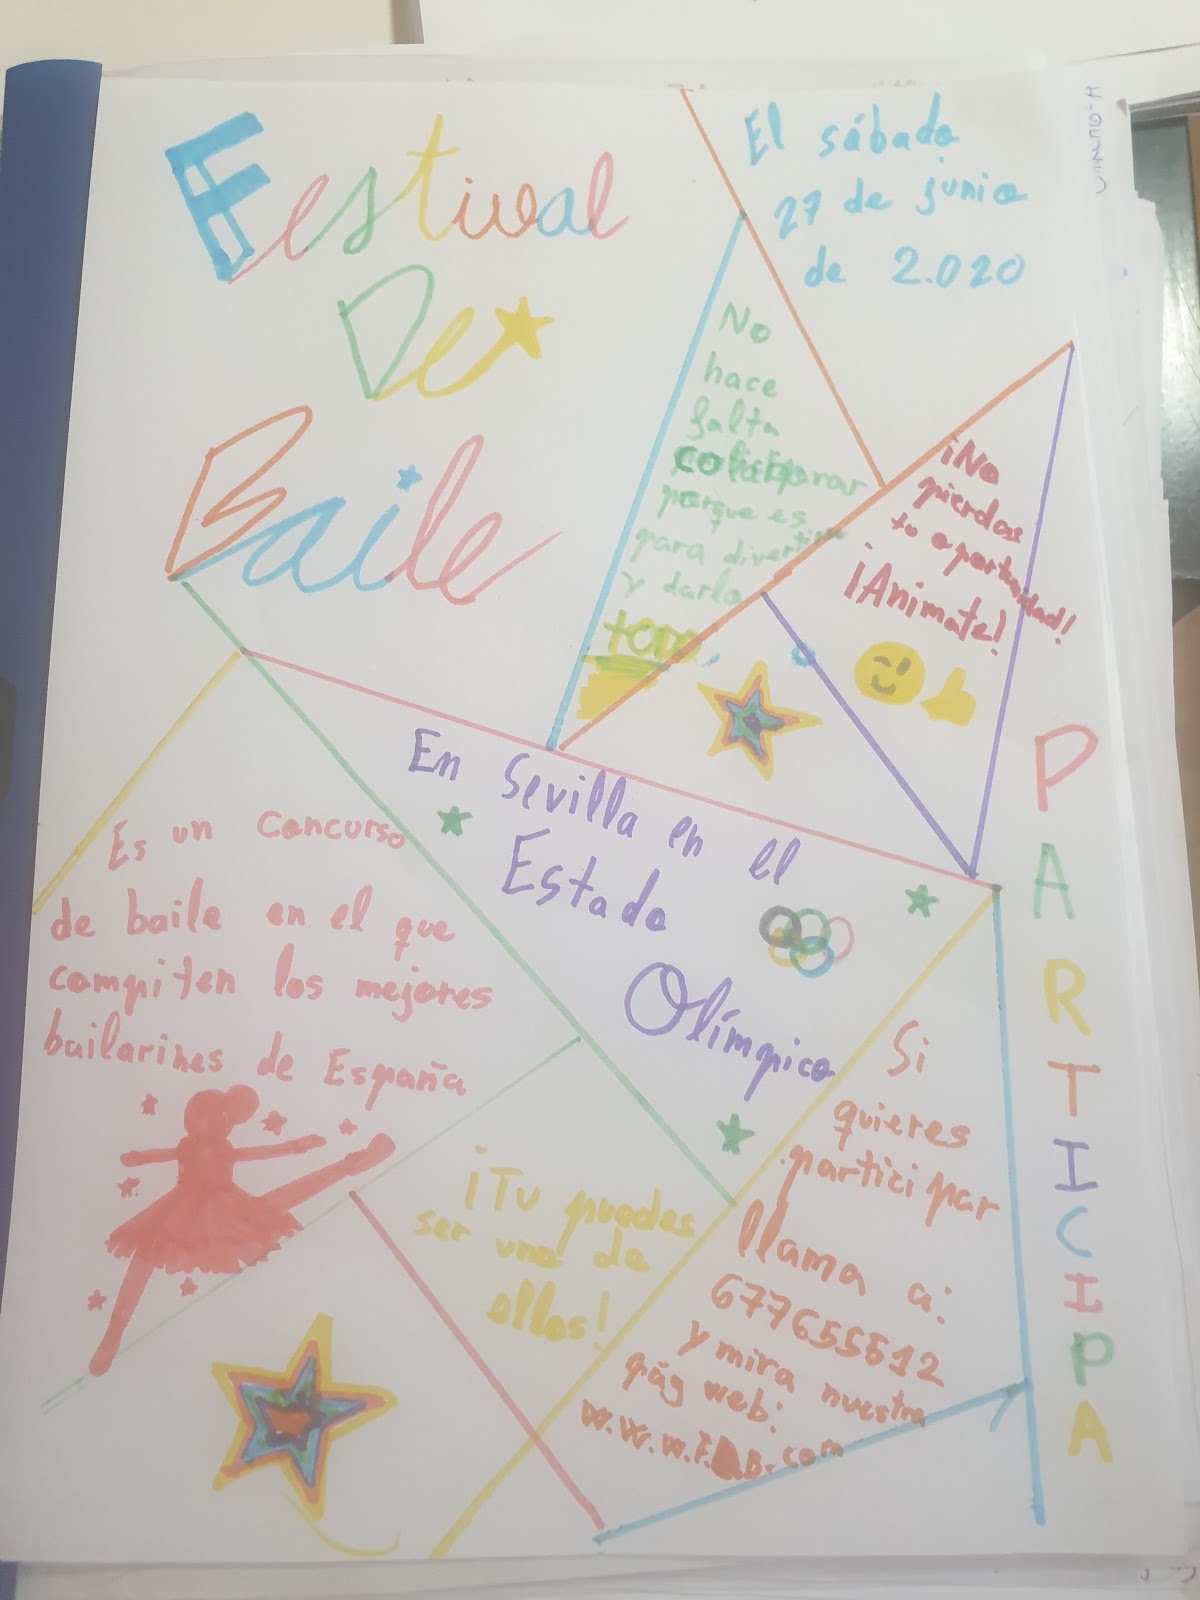 Festival
De
Baile
El sábado
27 de junio
de 2.020
No
hace
falta
colaborar
porque es
para divertirse
y darlo
todo
¡No
pierdas
tu oportunidad!
¡Animate!
En Sevilla en el
Estado
Olímpico
Es un concurso
de baile en el que
compiten los mejores
bailarines de España
¡Tu puedes
ser uno de
ellos!
Si
quieres
participar
llama a:
677655512
y mira nuestra
pág web:
w.w.w.F.D.B.com
PARTICIPA